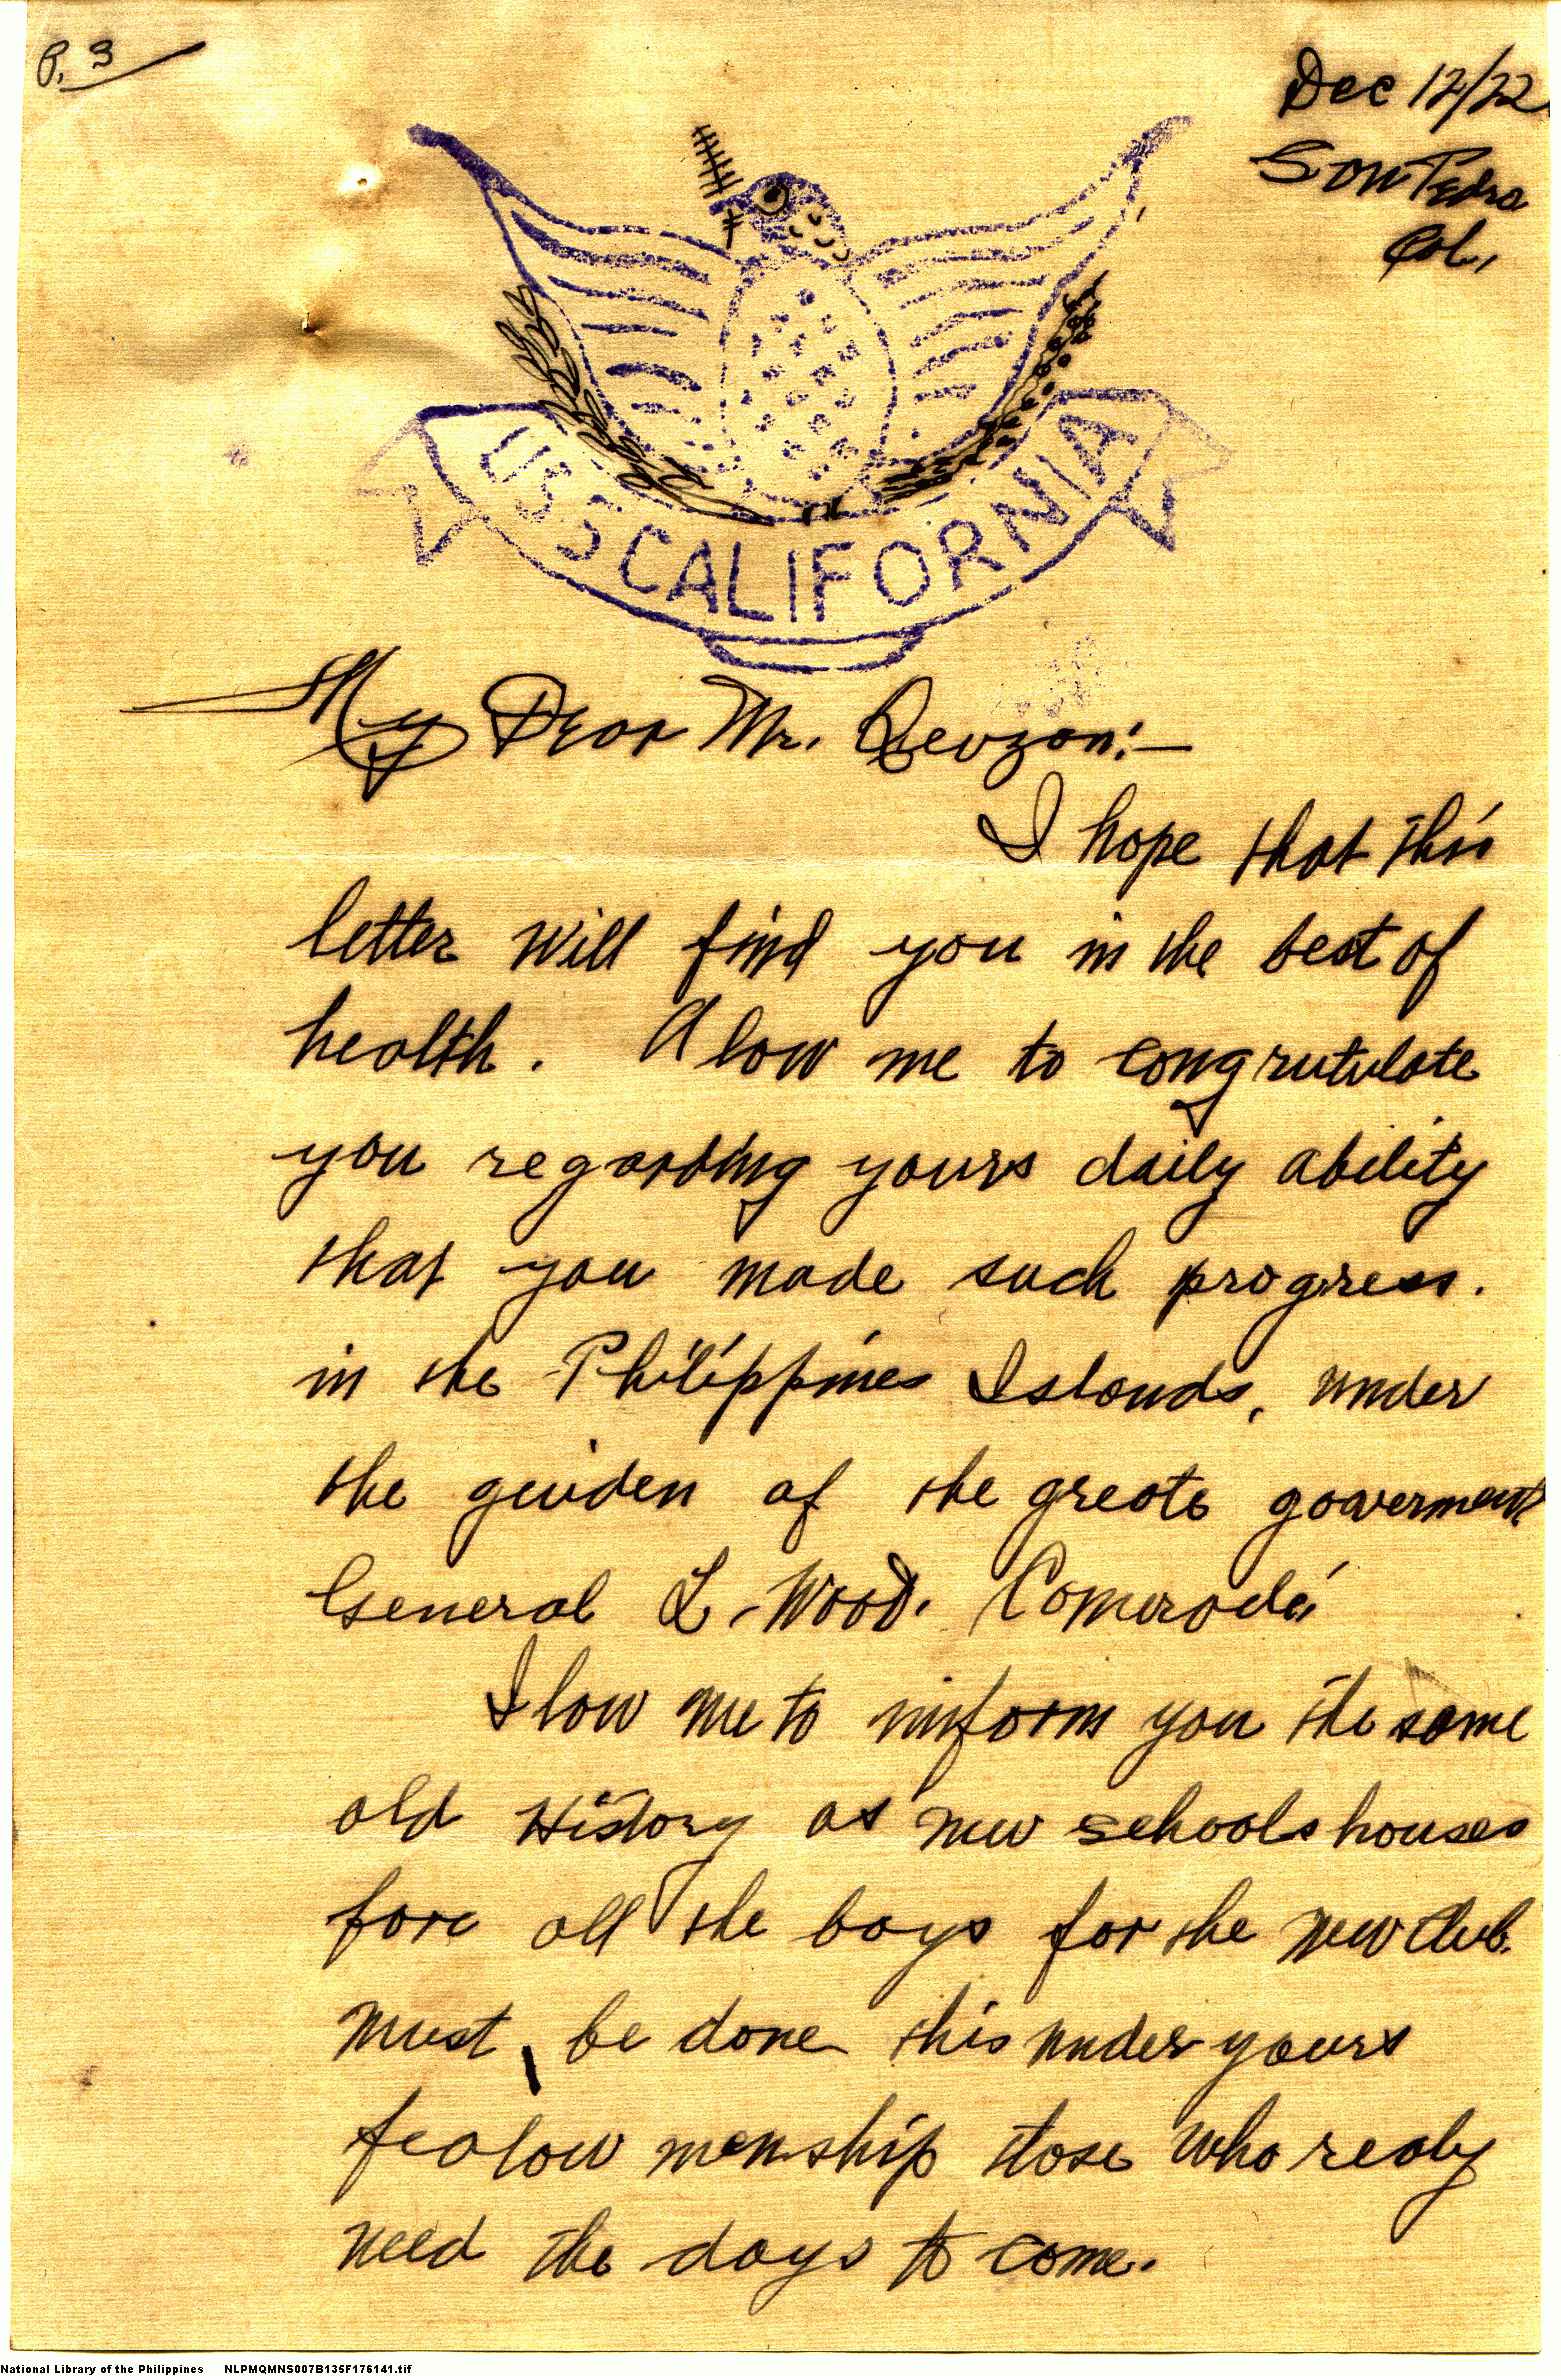 P. 3
Dec 12/22.
San Pedro
Cal,
USS CALIFORNIA
My Dear Mr. Quezon:—
I hope that this
letter will find you in the best of
health. Alow me to congrutulate
you regarding yours daily ability
that you made such progress.
in the Philippines Islands, under
the guiden of the greate goverment
General L. Wood. Comerade,
Alow me to inform you the same
old History as new schools houses
fore all the boys for the new Club.
must, be done this under yours
fealow menship those who realy
need the days to come.
National Library of the Philippines NLPMQMNS007B135F176141.tif